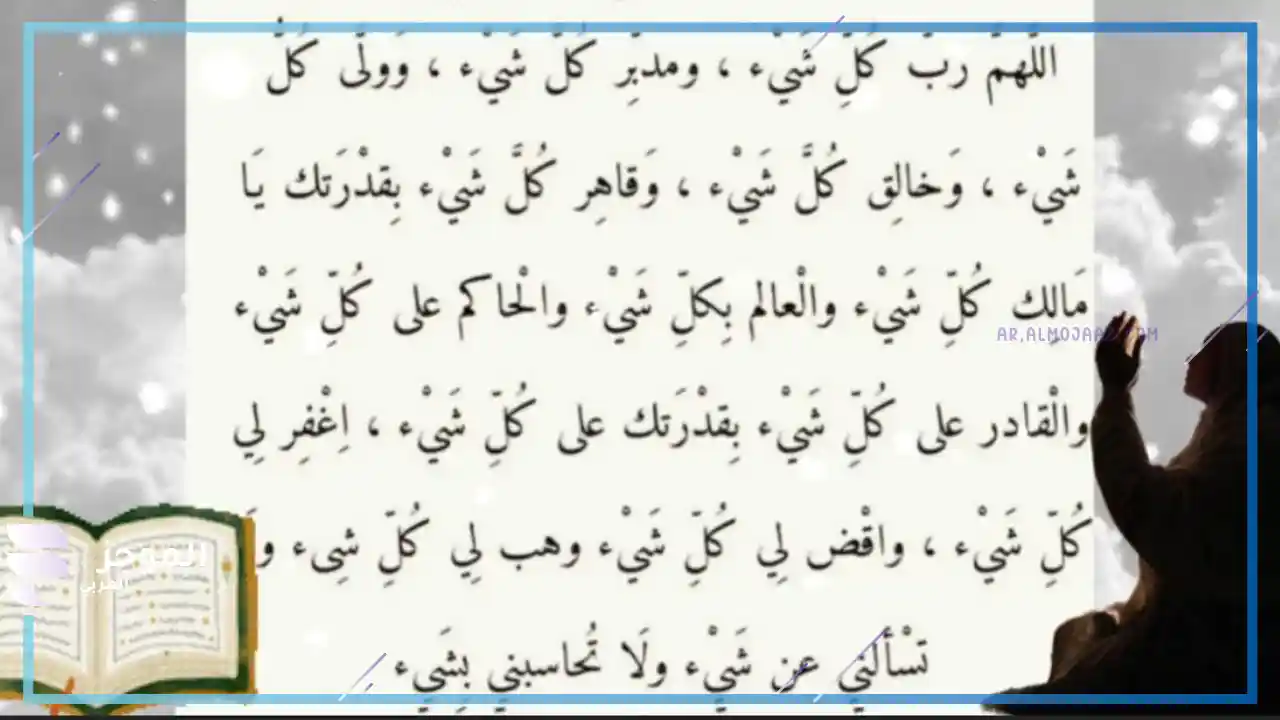 اللّهمّ ربّ كُلِّ شَيْء ، ومدبِّر كُلّ شَيْء ، وَولّى كُلْ
شَيْء ، وَخالِق كُلَّ شَيْء ، وَقاهِر كُلَّ شَيْء بِقدْرَتك يَا
مَالِك كُلِّ شَيْء والْعالم بِكلِّ شَيْء والْحاكم على كُلِّ شَيْء
والْقادر على كُلِّ شَيْء بِقدْرَتك على كُلِّ شَيْء ، اِغْفِر لِي
كُلِّ شَيْء ، واقْض لِي كُلِّ شَيْء وهب لِي كُلِّ شِىء و
تسْألني عن شَيْء ولَا تُحاسبني بِشَيء
المُوجز
العربي